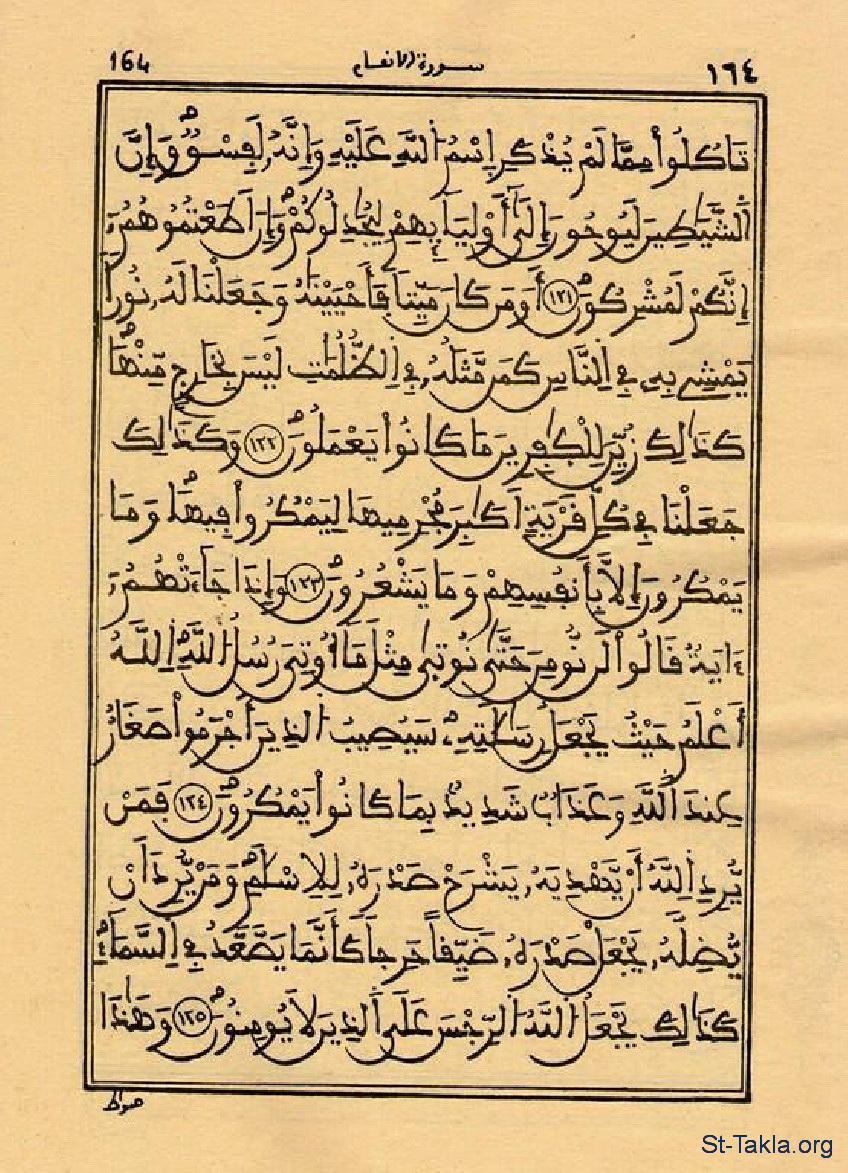 164 سورة الانعام ١٦٤
تَاكُلُواْ مِمَّا لَمْ يُذْكَرِ اِسْمُ اُللَّهِ عَلَيْهِ وَإِنَّهُۥ لَفِسْقٞ وَإِنَّ
اَلشَّيَٰطِينَ لَيُوحُونَ إِلَىٰٓ أَوْلِيَآئِهِمْ لِيُجَٰدِلُوكُمْ وَإِنَ اَطَعْتُمُوهُمُۥٓ
إِنَّكُمْ لَمُشْرِكُونَ ١٢١ أَوَمَن كَانَ مَيِّتاٗ فَأَحْيَيْنَٰهُ وَجَعَلْنَا لَهُۥ نُوراٗ
يَمْشِے بِهِۦ فِے اِلنَّاسِ كَمَن مَّثَلُهُۥ فِے اِلظُّلُمَٰتِ لَيْسَ بِخَارِجٖ مِّنْهَا
كَذَٰلِكَ زُيِّنَ لِلْكَٰفِرِينَ مَا كَانُواْ يَعْمَلُونَ ١٢٢ وَكَذَٰلِكَ
جَعَلْنَا فِے كُلِّ قَرْيَةٍ اَكَٰبِرَ مُجْرِمِيهَا لِيَمْكُرُواْ فِيهَا وَمَا
يَمْكُرُونَ إِلَّا بِأَنفُسِهِمْ وَمَا يَشْعُرُونَ ١٢٣ وَإِذَا جَآءَتْهُمُۥٓ
ءَايَةٞ قَالُواْ لَن نُّومِنَ حَتَّىٰ نُوتَىٰ مِثْلَ مَآ أُوتِيَ رُسُلُ اُللَّهِ اِللَّهُ
أَعْلَمُ حَيْثُ يَجْعَلُ رِسَٰلَٰتِهِۦ سَيُصِيبُ اُلذِينَ أَجْرَمُواْ صَغَارٌ
عِندَ اَللَّهِ وَعَذَابٞ شَدِيدُۢ بِمَا كَانُواْ يَمْكُرُونَ ١٢٤ فَمَنْ
يُّرِدِ اِللَّهُ أَنْ يَّهْدِيَهُۥ يَشْرَحْ صَدْرَهُۥ لِلِاسْلَٰمِ وَمَنْ يُّرِدَ اَنْ
يُّضِلَّهُۥ يَجْعَلْ صَدْرَهُۥ ضَيِّقاً حَرِجاٗ كَأَنَّمَا يَصَّعَّدُ فِے اِلسَّمَآءِ
كَذَٰلِكَ يَجْعَلُ اُللَّهُ اُلرِّجْسَ عَلَى اَلذِينَ لَا يُومِنُونَ ١٢٥ وَهَٰذَا
صراط
St-Takla.org